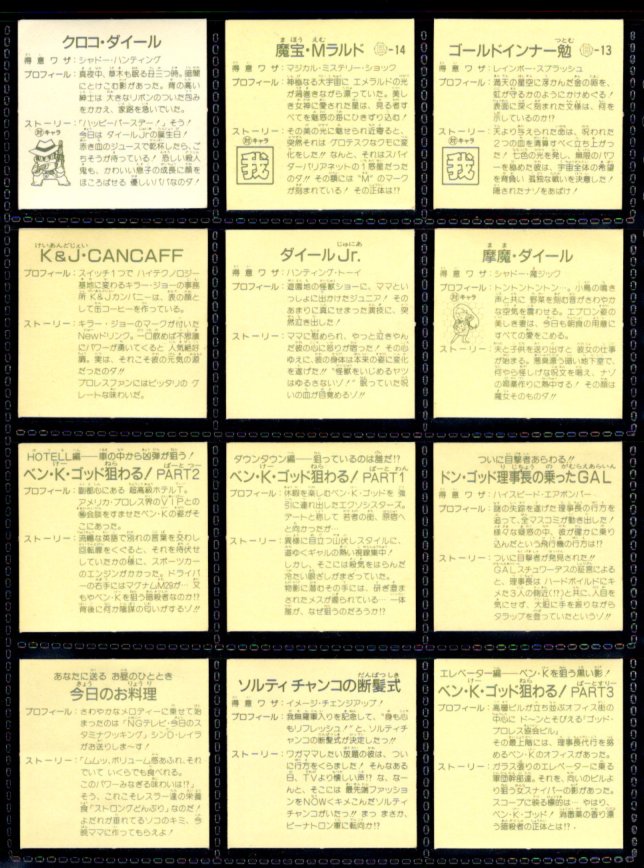 クロコ・ダイール
得意ワザ：シャドー・ハンティング
プロフィール：真夜中、草木も眠る丑三つ時。暗闇
にとけこむ影があった。背の高い
紳士は 大きなリボンのついた包み
をかかえ、家路を急いでいた。
ストーリー：「ハッピーバースデー！」そう！
対キャラ
今日は ダイールJrの誕生日！
赤き血のジュースで乾杯したら、ご
ちそうが待っている！ 恐しい殺人
鬼も、かわいい息子の成長に顔を
ほころばせる 優しいパパなのダ！
まほう えむ
魔宝・Mラルド
-14
得意ワザ：マジカル・ミステリー・ショック
プロフィール：神秘なる大宇宙に エメラルドの光
が過巻きながら漂っていた。美し
き女神に愛された星は、見る者す
べてを魅惑の島にひきずり込む！
ストーリー：その美の光に魅せられ近寄ると、
対キャラ
我
突然それは グロテスクなクモに変
化をした!! なんと、それはスパイ
ダーバリアネットの1惑星だった
のダ!! その額には "M" のマーク
が刻まれている！ その正体は!?
つとむ
ゴールドインナー勉
-13
得意ワザ：レインボー・スプラッシュ
プロフィール：満天の星空に浮かんだ金の卵を、
虹が守るかのようにかけめぐる！
表面に深く刻まれた文様は、何を
示しているのか!?
ストーリー：天より与えられた命は、呪われた
対キャラ
我
2つの血を清算すべく立ち上がっ
た！ 七色の光を発し、無限のパワ
ーを極めた彼は、宇宙全体の希望
を背負い 孤独な戦いを決意した！
隠されたナゾをあばけ！
けいあんどじぇい
K&J・CANCAFF
プロフィール：スイッチ1つで ハイテクノロジー
基地に変わるキラー・ジョーの事務
所 K&Jカンパニーは、表の顔と
して缶コーヒーを作っている。
ストーリー：キラー・ジョーのマークが付いた
Newドリンク。一口飲めば不思議
にパワーが湧いてくると 人気絶好
調。実は、それこそ彼の元気の源
だったのダ!!
プロレスファンにはピッタリの グ
レートな味わいだ。
じゅにあ
ダイールJr.
得意ワザ：ハンティング・トーイ
プロフィール：遊園地の怪獣ショーに、ママとい
っしょに出かけたジュニア！ その
あまりに真にせまった演技に、突
然泣き出した！
ストーリー：ママに慰められ、やっと泣きやん
だ彼の心に怒りが宿った！ その心
ゆえに、彼の身体は本来の姿に変化
を遂げた!! "怪獣をいじめるヤツ
はゆるさないゾ！" 眠っていた呪
いの血が目覚めるゾ!!
まま
摩魔・ダイール
得意ワザ：シャドー・魔ジック
プロフィール：トントントントン…。小鳥の鳴き
対キャラ
声と共に 野菜を刻む音がさわやか
な空気を震わせる。エプロン姿の
美しき妻は、今日も朝食の用意に
すべての愛をこめる。
ストーリー：夫と子供を送り出すと 彼女の仕事
が始まる。悪臭漂う暗い地下室で、
何やら怪しげな呪文を唱え、ナゾ
の媚薬作りに熱中する！ その顔は
魔女そのものダ!!
HOTELL編――車の中から凶弾が狙う！
けー ねら ぱーとつー
ベン・K・ゴッド狙わる！PART2
プロフィール：副都心にある 超高級ホテルT。
アメリカ・プロレス界のVIPとの
昼会談をすませたベン・Kの姿がそ
こにあった。
ストーリー：流暢な英語で別れの言葉を交わし
回転扉をくぐると、それを待伏せ
していたかの様に、スポーツカー
のエンジンがかかった。ドライバ
ーの右手にはマグナムM29が…又
もやベン・Kを狙う暗殺者なのか!?
背後に何か陰謀の匂いがするゾ!!
ダウンタウン編――狙っているのは誰だ!?
けー ねら ぱーと わん
ベン・K・ゴッド狙わる！PART1
プロフィール：休暇を楽しむベン・K・ゴッドを 強
引に連れ出したエクソシスターズ。
デートと称して 若者の街、原宿へ
と向かったが…
ストーリー：異様に目立つ山伏しスタイルに、
道ゆくギャルの熱い視線集中！
しかし、そこには殺気をはらんだ
冷たい眼ざしがまざっていた。
物影に潜むその手には、研ぎ澄ま
されたメスが握られている… 一体
誰が、なぜ狙うのだろうか!?
ついに目撃者あらわる!!
りじちょう の がむらえあらいん
ドン・ゴッド理事長の乗ったGAL
得意ワザ：ハイスピード・エアボンバー
プロフィール：謎の失踪を遂げた 理事長の行方を
追って、全マスコミが動き出した！
様々な疑惑の中、彼が確かに乗り
込んだという飛行機の行方は!?
ストーリー：ついに目撃者が発見された!!
GALスチュワーデスの証言による
と、理事長は ハードボイルドにキ
メた3人の側近(!?)と共に、人目を
気にせず、大胆に手を振りながら
タラップを登っていたというゾ!!
あなたに送る お昼のひととき
きょう りょうり
今日のお料理
プロフィール：さわやかなメロディーに乗せて始
まったのは「NGテレビ・今日のス
タミナクッキング」シンD・レイラ
がお送りしま～す！
ストーリー：「ムムッ、ボリューム感あふれ、それ
でいて いくらでも食べれる。
このパワーみなぎる味わいは!?」
そう、これこそレスラー達の栄養
食「ストロングどんぶり」なのだ！
よだれが垂れてるソコのキミ、今
晩ママに作ってもらえよ！
だんぱつしき
ソルティチャンコの断髪式
得意ワザ：イメージ・チェンジアップ！
プロフィール：我無羅軍入りを記念して、"身も心
もリフレッシュ！"と、ソルティチ
ャンコの断髪式が決定したっ!!
ストーリー：ワガママしたい放題の彼は、つい
に行方をくらました！ そんなある
日、TVより懐しい声!? な、なー
んと、そこには 最先端ファッショ
ンをNOWくキメこんだソルティ
チャンコがいたっ!! まっ まさか、
ピーナトロン軍に転向か!?
エレベーター編――ベン・Kを狙う黒い影！
けー ねら ぱーとすりー
ベン・K・ゴッド狙わる！PART3
プロフィール：高層ビルが立ち並ぶオフィス街の
中心に ドーンとそびえる「ゴッド・
プロレス協会ビル」。
その最上階には、理事長代行を努
めるベン・Kのオフィスがあった。
ストーリー：ガラス張りのエレベーターに乗る
軍団幹部達。それを、向いのビルよ
り狙う女スナイパーの影があった。
スコープに映る標的は… やはり、
ベン・K・ゴッド！ 消毒薬の香り漂
う暗殺者の正体とは!?